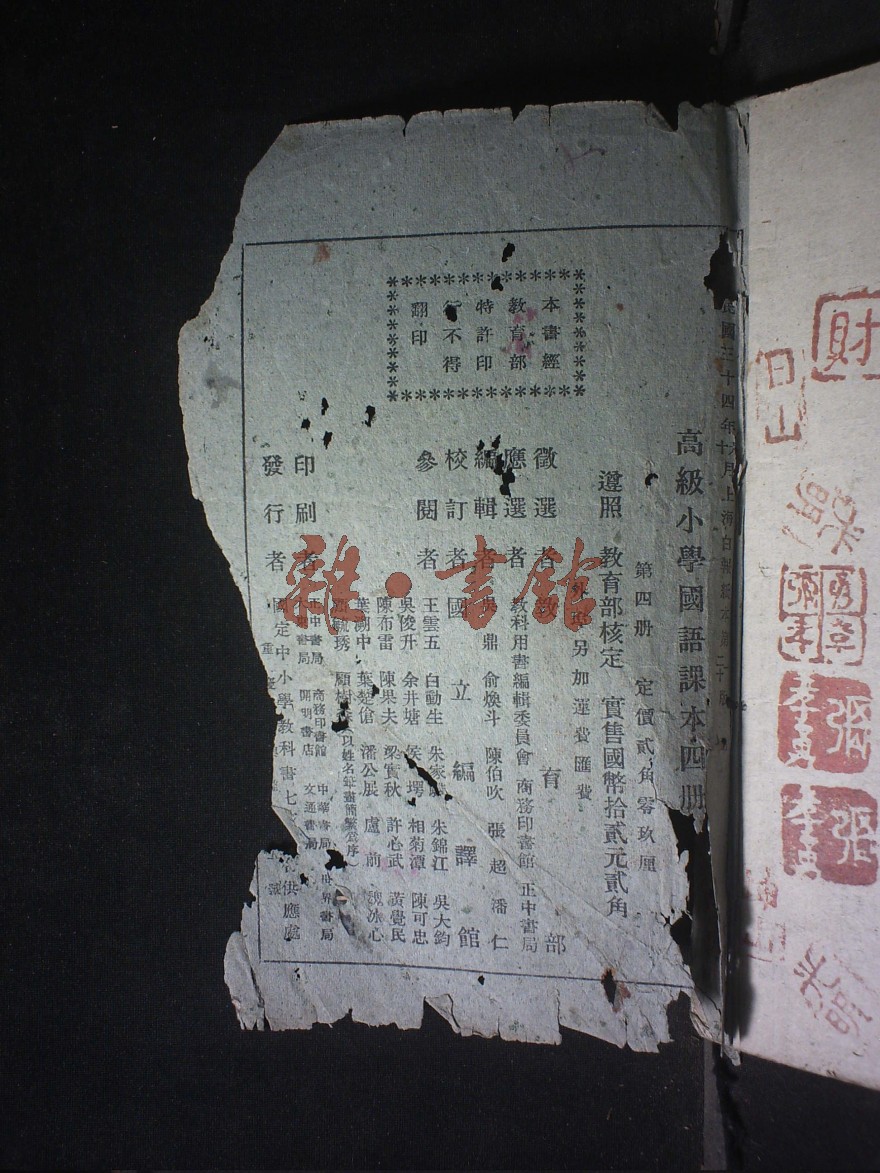 國三十四年
月上海白報紙本第二十版
高級小學國語課本四册
第四册 定價貳角零玖厘
遵照 教育部核定 實售國幣拾貳元貳角
另加運費匯費
本書經
教育部
特許印
行不得
翻印
徵選者 教育部
應選者 教科用書編輯委員會 商務印書館 正中書局
編輯者 吳鼎 俞煥斗 陳伯吹 張超 潘仁
校訂者 國立編譯館
參閱者 王雲五 白動生 朱家 朱錦江 吳大鈞
吳俊升 余井塘 侯堮 相菊潭 陳可忠
陳布雷 陳果夫 梁實秋 許心武 黃覺民
葉溯中 葉楚傖 潘公展 盧前 魏冰心
毓琇 顧樹 以姓名筆畫簡繁爲序）
印刷者 正中書局 商務印書館 中華書局 世界書局
大東書局 開明書店 文通書局
發行者 國定中小學教科書七 供應處
重慶
雜·書館
財
日山
張
李貞
張
李貞